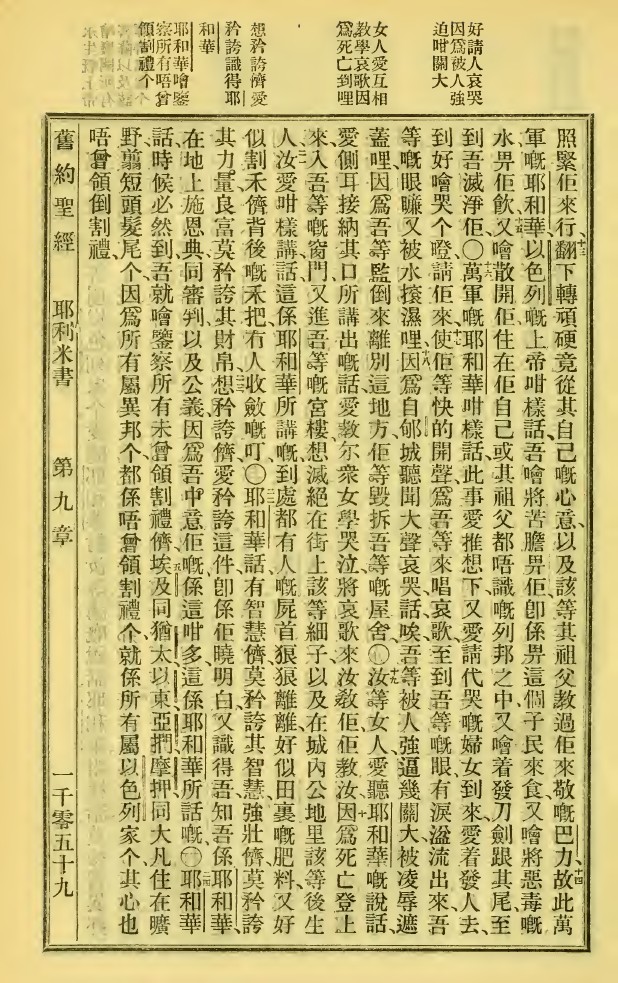 好請人哀哭
因為被人強
迫咁關大
女人愛互相
教學哀歌因
為死亡到哩
想矜誇儕愛
矜誇識得耶
和華
耶和華噲鑒
察所有唔曾
領割禮个
照緊佢來行、翻下轉頑硬竟從其自己嘅心意、以及該等其祖父教過佢來敬嘅巴力、故此萬
軍嘅耶和華以色列嘅上帝咁樣話、吾噲將苦膽畀佢卽係畀這個子民來食、又噲將惡毒嘅
水畀佢飲、又噲散開佢住在佢自己或其祖父都唔識嘅列邦之中、又噲着發刀劍跟其尾、至
到吾滅淨佢〇萬軍嘅耶和華咁樣話、此事愛推想下、又愛請代哭嘅婦女到來、愛着發人去、
到好噲哭个蹬、請佢來、使佢等快的開聲、為吾等來唱哀歌、至到吾等嘅眼有淚溢流出來、吾
等嘅眼𥍉又被水滾濕哩、因為自郇城聽聞大聲哀哭話、唉、吾等被人強逼幾關大、被凌辱遮
蓋哩、因為吾等監倒來離別這地方、佢等毀拆吾等嘅屋舍〇汝等女人愛聽耶和華嘅說話、
愛側耳接納其口所講出嘅話、愛教尔衆女學哭泣、將哀歌來汝教佢佢教汝、因為死亡登上
來、入吾等嘅窗門、又進吾等嘅宮樓、想滅絕在街上該等細子、以及在城內公地里該等後生
人、汝愛咁樣講話、這係耶和華所講嘅、到處都有人嘅屍首狼狼離離、好似田裏嘅肥料、又好
似割禾儕背後嘅禾把、有人收斂嘅叮〇耶和華話、有智慧儕莫矜誇其智慧、強壯儕莫矜誇
其力量、良富莫矜誇其財帛、想矜誇儕愛矜誇這件、卽係佢曉明白又識得吾、知吾係耶和華、
在地上施恩典、同審判以及公義、因為吾中意佢嘅係這咁多、這係耶和華所話嘅〇耶和華
話、時候必然到、吾就噲鑒察所有未曾領割禮儕、埃及同猶太以東亞捫摩押、同大凡住在曠
野、翦短頭髮尾个、因為所有屬異邦个、都係唔曾領割禮个、就係所有屬以色列家个、其心也
唔曾領倒割禮
舊約聖經 耶利米書 第九章 一千零五十九